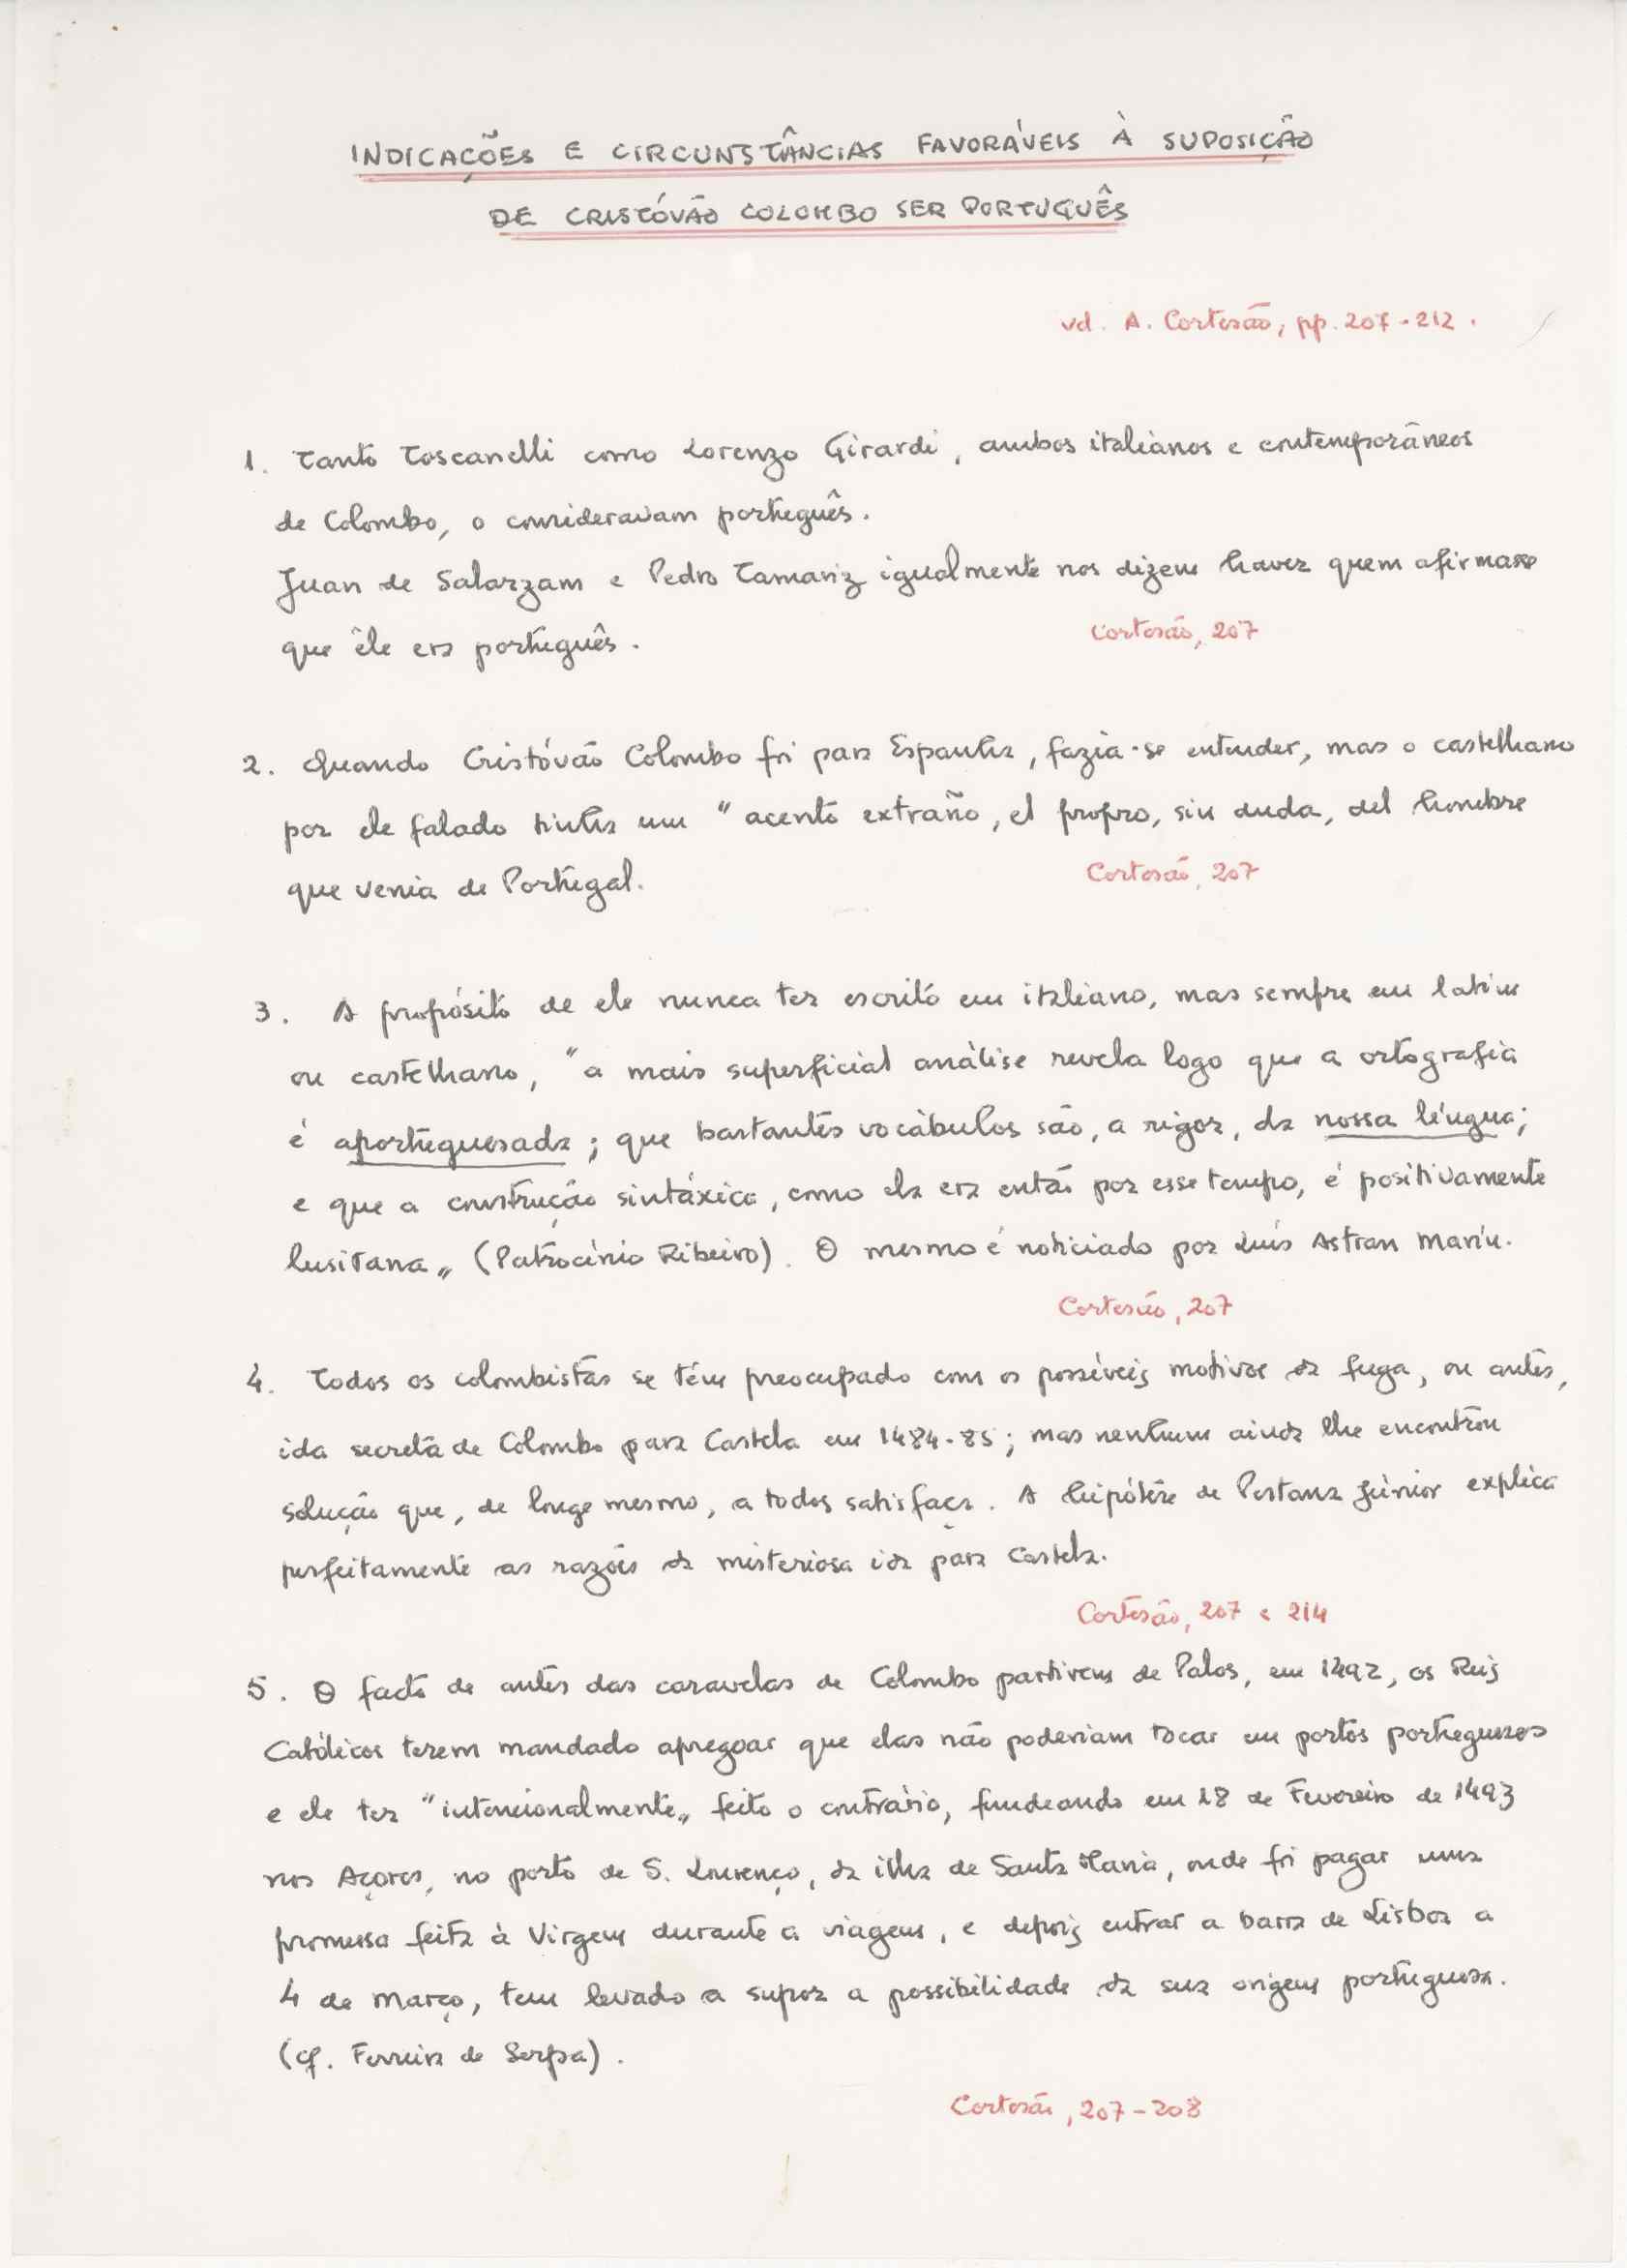 INDICAÇÕES E CIRCUNSTÂNCIAS FAVORÁVEIS À SUPOSIÇÃO
DE CRISTÓVÃO COLOMBO SER PORTUGUÊS
vd. A. Cortesão, pp. 207-212.
1. Tanto Toscanelli como Lorenzo Girardi, ambos italianos e contemporâneos
de Colombo, o consideravam português.
Juan de Salarzam e Pedro Tamariz igualmente nos dizem haver quem afirmasse
que êle era português.
Cortesão, 207
2. Quando Cristóvão Colombo foi para Espanha, fazia-se entender, mas o castelhano
por ele falado tinha um "acento extraño, el propro, sin duda, del hombre
que venia de Portugal.
Cortesão, 207
3. A propósito de ele nunca ter escrito em italiano, mas sempre em latim
ou castelhano, "a mais superficial análise revela logo que a ortografia
é aportuguesada; que bastantes vocábulos são, a rigor, da nossa língua;
e que a construção sintáxica, como ela era então por esse tempo, é positivamente
lusitana" (Patrocínio Ribeiro). O mesmo é noticiado por Luís Astran Marin.
Cortesão, 207
4. Todos os colombistas se têm preocupado com os possíveis motivos da fuga, ou antes,
ida secreta de Colombo para Castela em 1484-85; mas nenhum ainda lhe encontrou
solução que, de longe mesmo, a todos satisfaça. A hipótese de Pestana Júnior explica
perfeitamente as razões da misteriosa ida para Castela.
Cortesão, 207 e 214
5. O facto de antes das caravelas de Colombo partirem de Palos, em 1492, os Reis
Católicos terem mandado apregoar que elas não poderiam tocar em portos portugueses
e ele ter "intencionalmente" feito o contrário, fundeando em 18 de Fevereiro de 1493
nos Açores, no porto de S. Lourenço, da ilha de Santa Maria, onde foi pagar uma
promessa feita à Virgem durante a viagem, e depois entrar a barra de Lisboa a
4 de Março, tem levado a supor a possibilidade da sua origem portuguesa.
(cf. Ferreira de Serpa).
Cortesão, 207-208